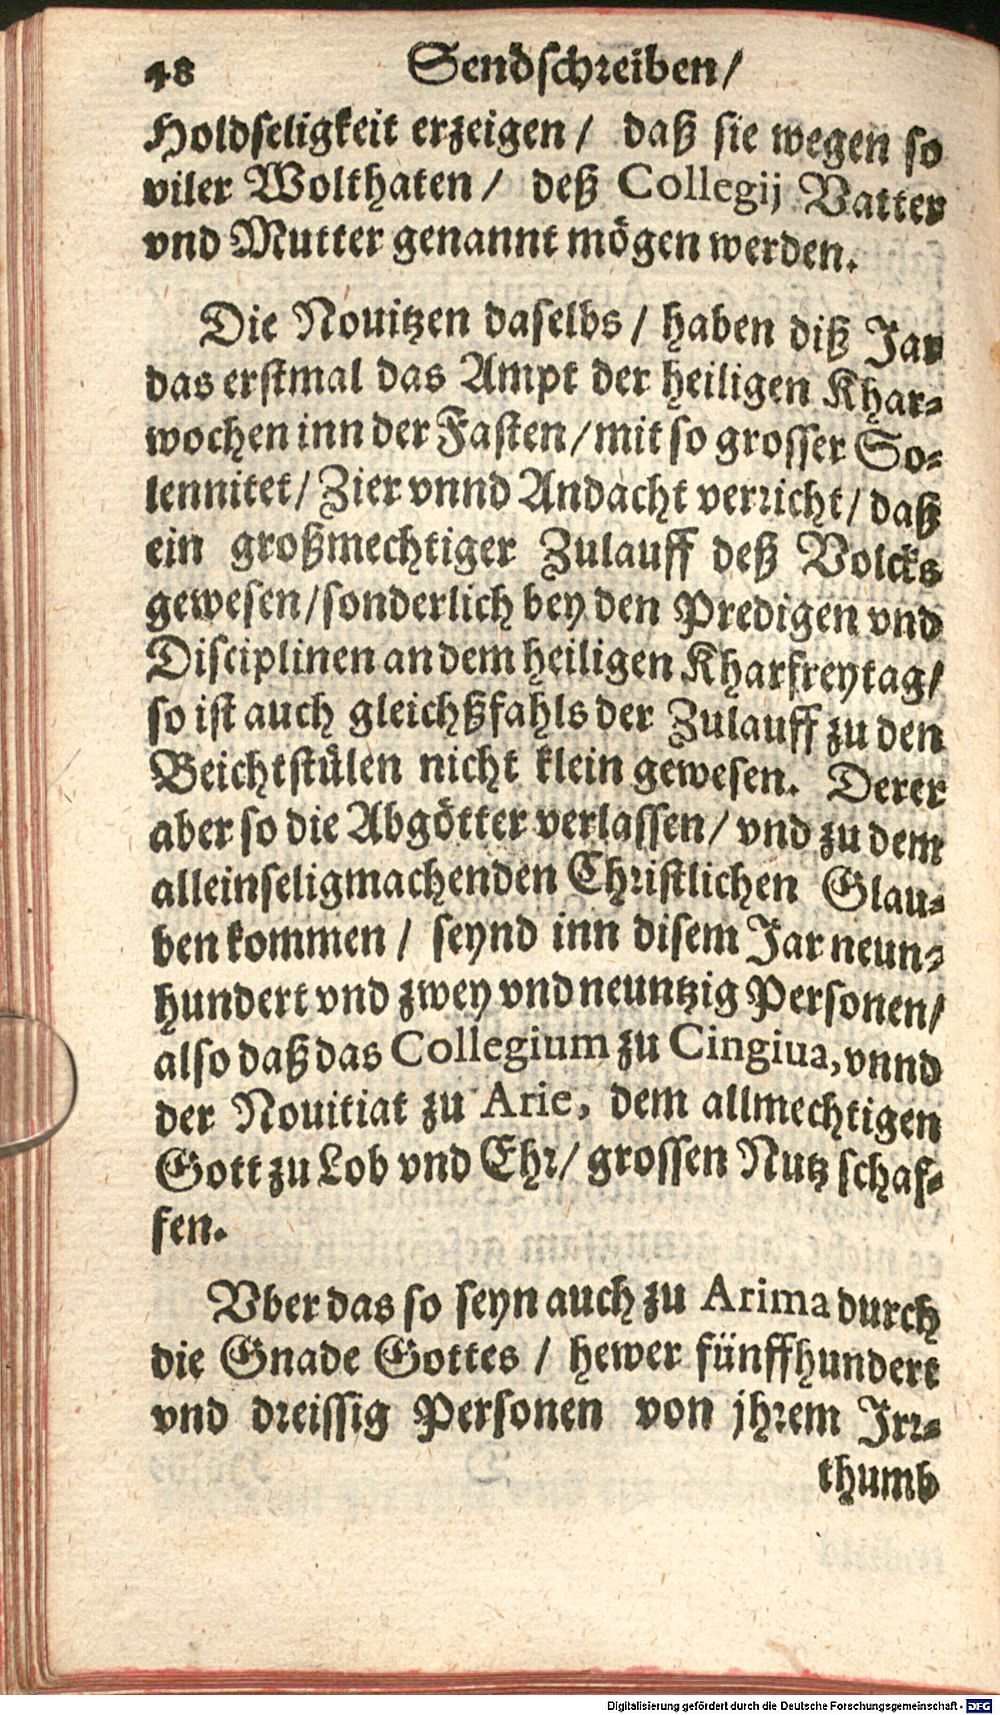 48 Sendschreiben/
Holdseligkeit erzeigen / daß sie wegen so
viler Wolthaten / deß Collegij Vatter
vnd Mutter genannt mögen werden.
Die Nouitzen daselbs / haben diß Jar
das erstmal das Ampt der heiligen Khar-
wochen inn der Fasten/mit so grosser So-
lennitet/ Zier vnnd Andacht verricht/ daß
ein großmechtiger Zulauff deß Volcks
gewesen/sonderlich bey den Predigen vnd
Disciplinen an dem heiligen Kharfreytag/
so ist auch gleichßfahls der Zulauff zu den
Beichtstůlen nicht klein gewesen. Derer
aber so die Abgötter verlassen/ vnd zu dem
alleinseligmachenden Christlichen Glau-
ben kommen / seynd inn disem Jar neun-
hundert vnd zwey vnd neuntzig Personen/
also daß das Collegium zu Cingiua, vnnd
der Nouitiat zu Arie, dem allmechtigen
Gott zu Lob vnd Ehr/ grossen Nutz schaf-
fen.
Vber das so seyn auch zu Arima durch
die Gnade Gottes / hewer fünffhundert
vnd dreissig Personen von jhrem Irr-
thumb
Digitalisierung gefördert durch die Deutsche Forschungsgemeinschaft - DFG